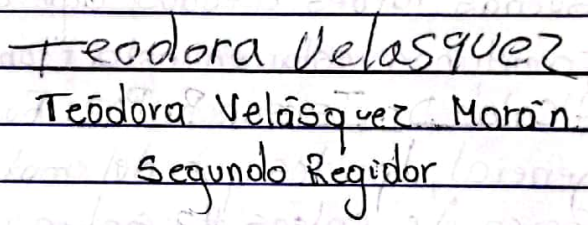 Teodora Velasquez
Teōdora Velāsquez Morān.
Segundo Regidor